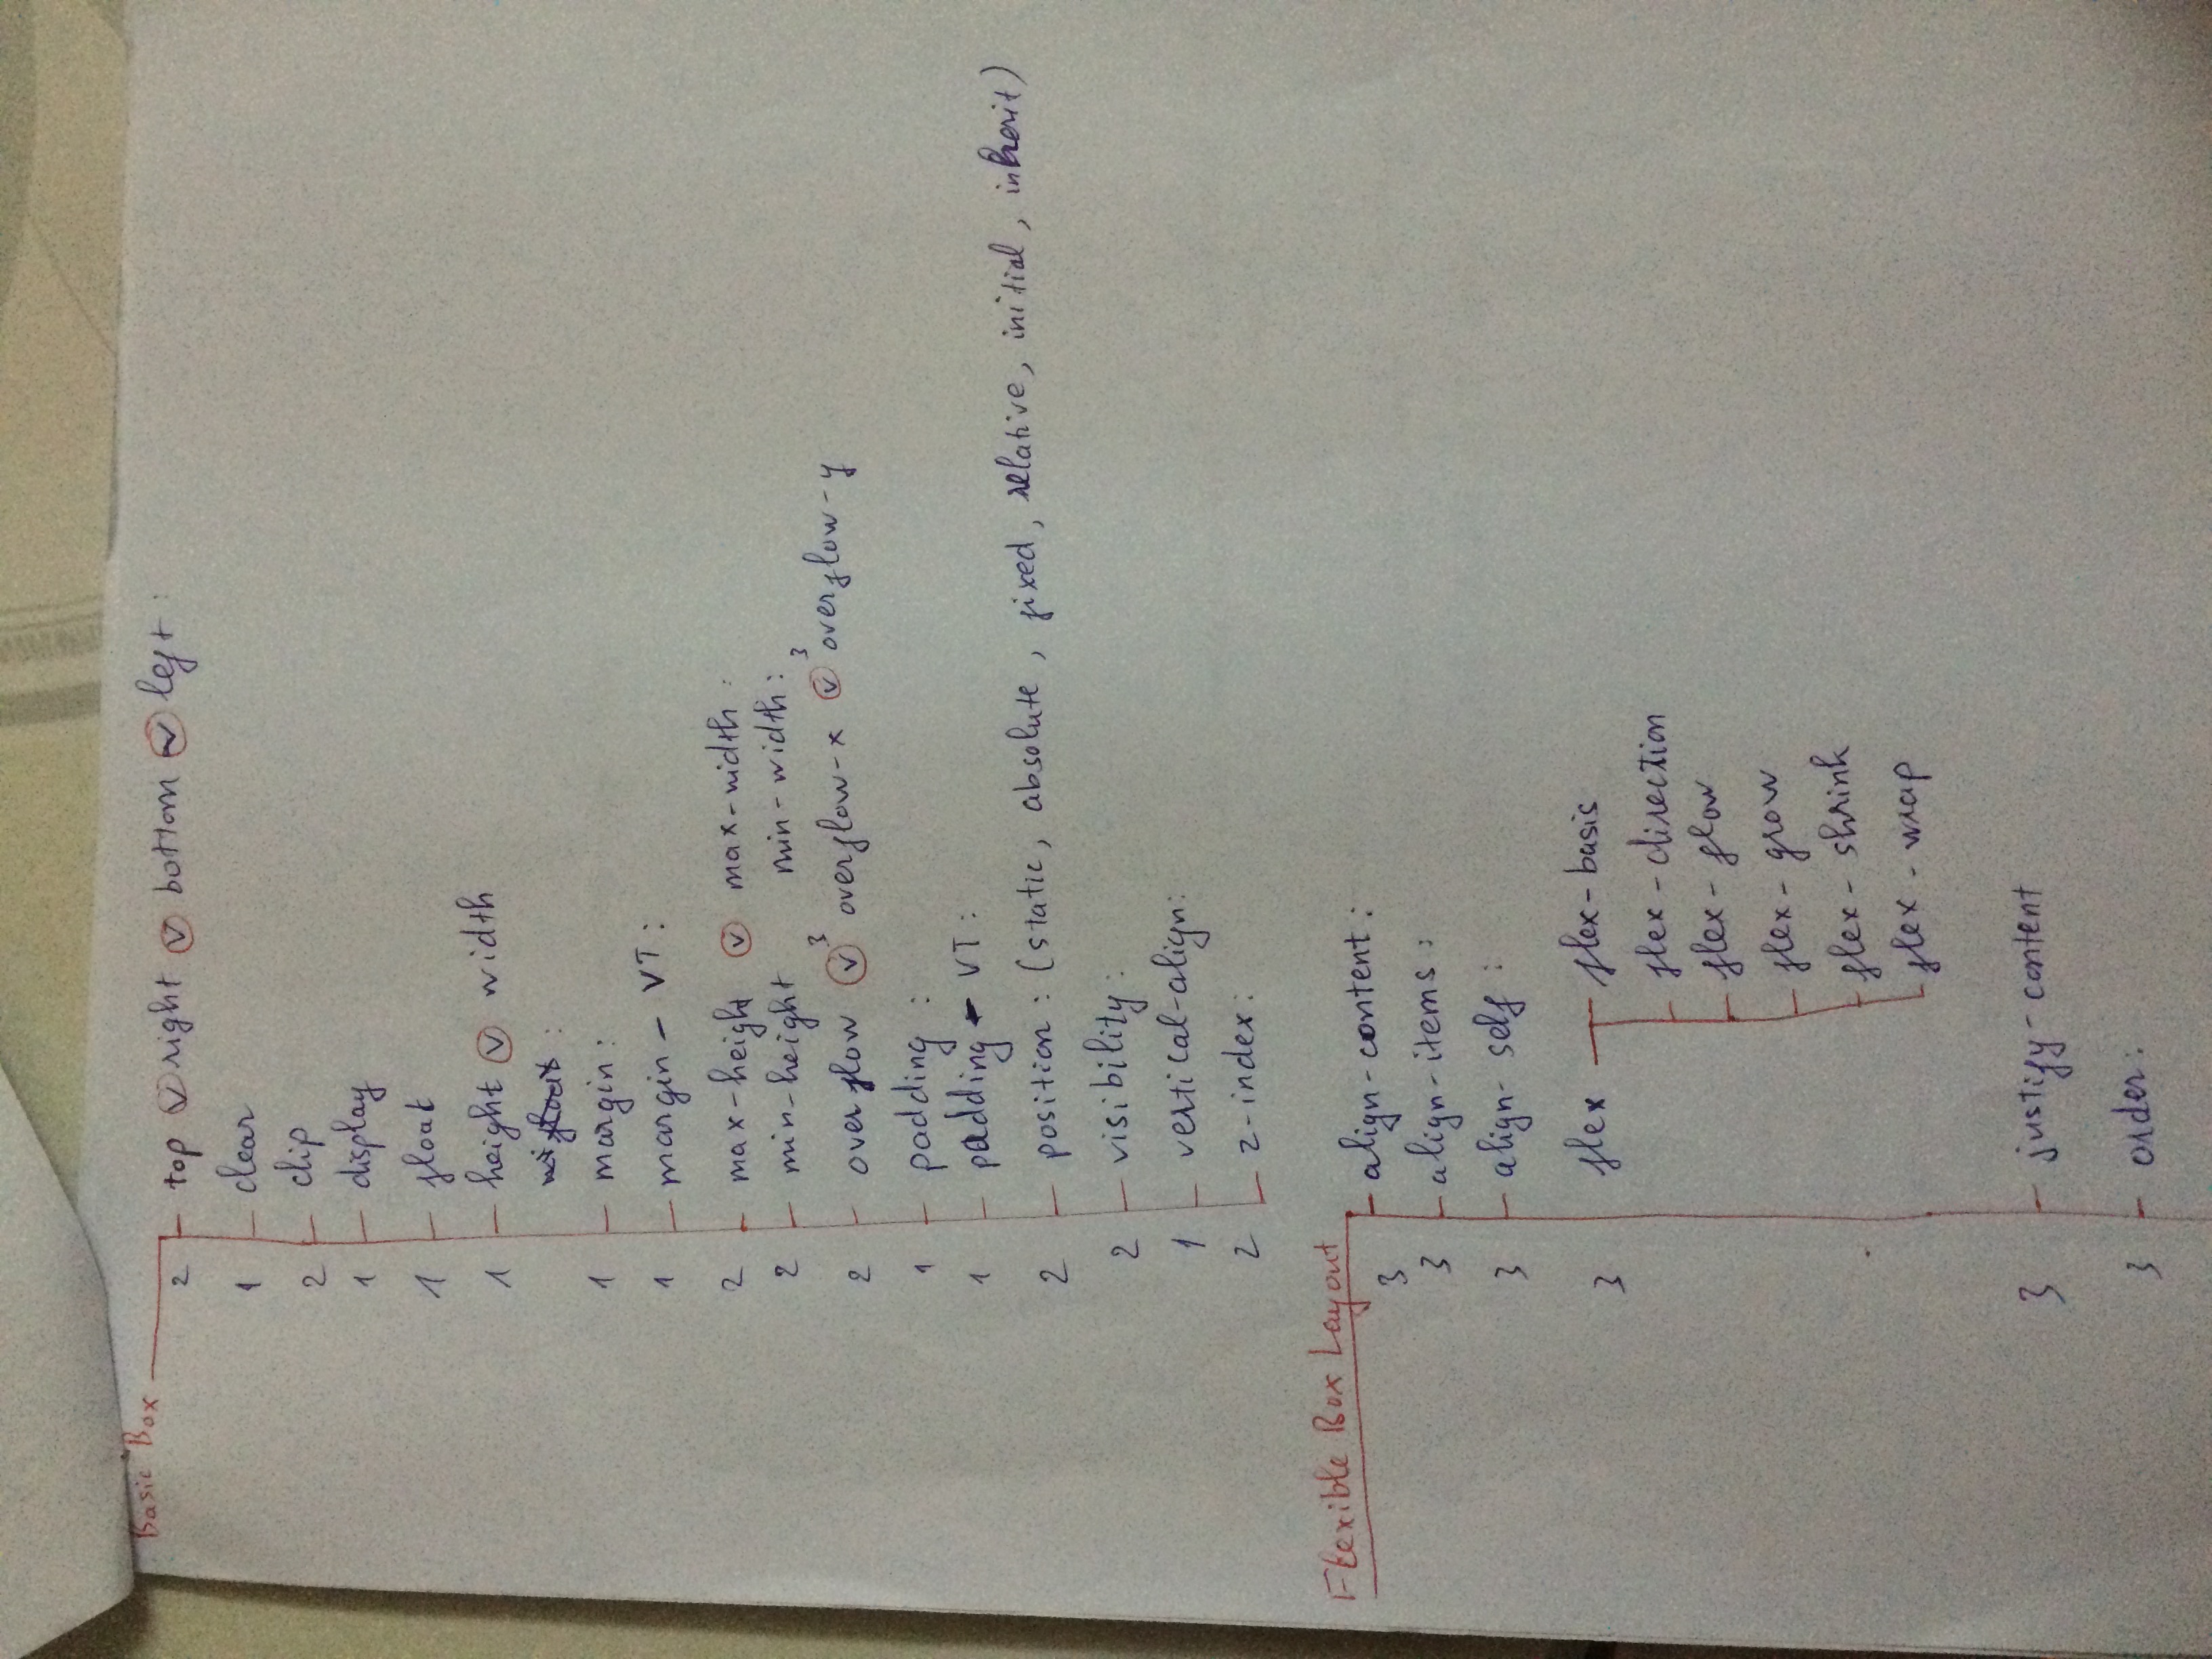 Basic Box
2 top v right v bottom v left :
1 clear
2 clip
1 display
1 float
1 height v width
1 margin :
1 margin - VT :
2 max-height v max-width :
2 min-height min-width :
2 overflow v 3 overflow-x v 3 overflow-y
1 padding :
1 padding - VT :
2 position : (static, absolute, fixed, relative, initial, inherit)
2 visibility :
1 vertical-align:
2 z-index :
Flexible Box Layout
3 align-content :
3 align-items :
3 align-self :
3 flex flex-basis
flex-direction
flex-flow
flex-grow
flex-shrink
flex-wrap
3 justify-content
3 order :